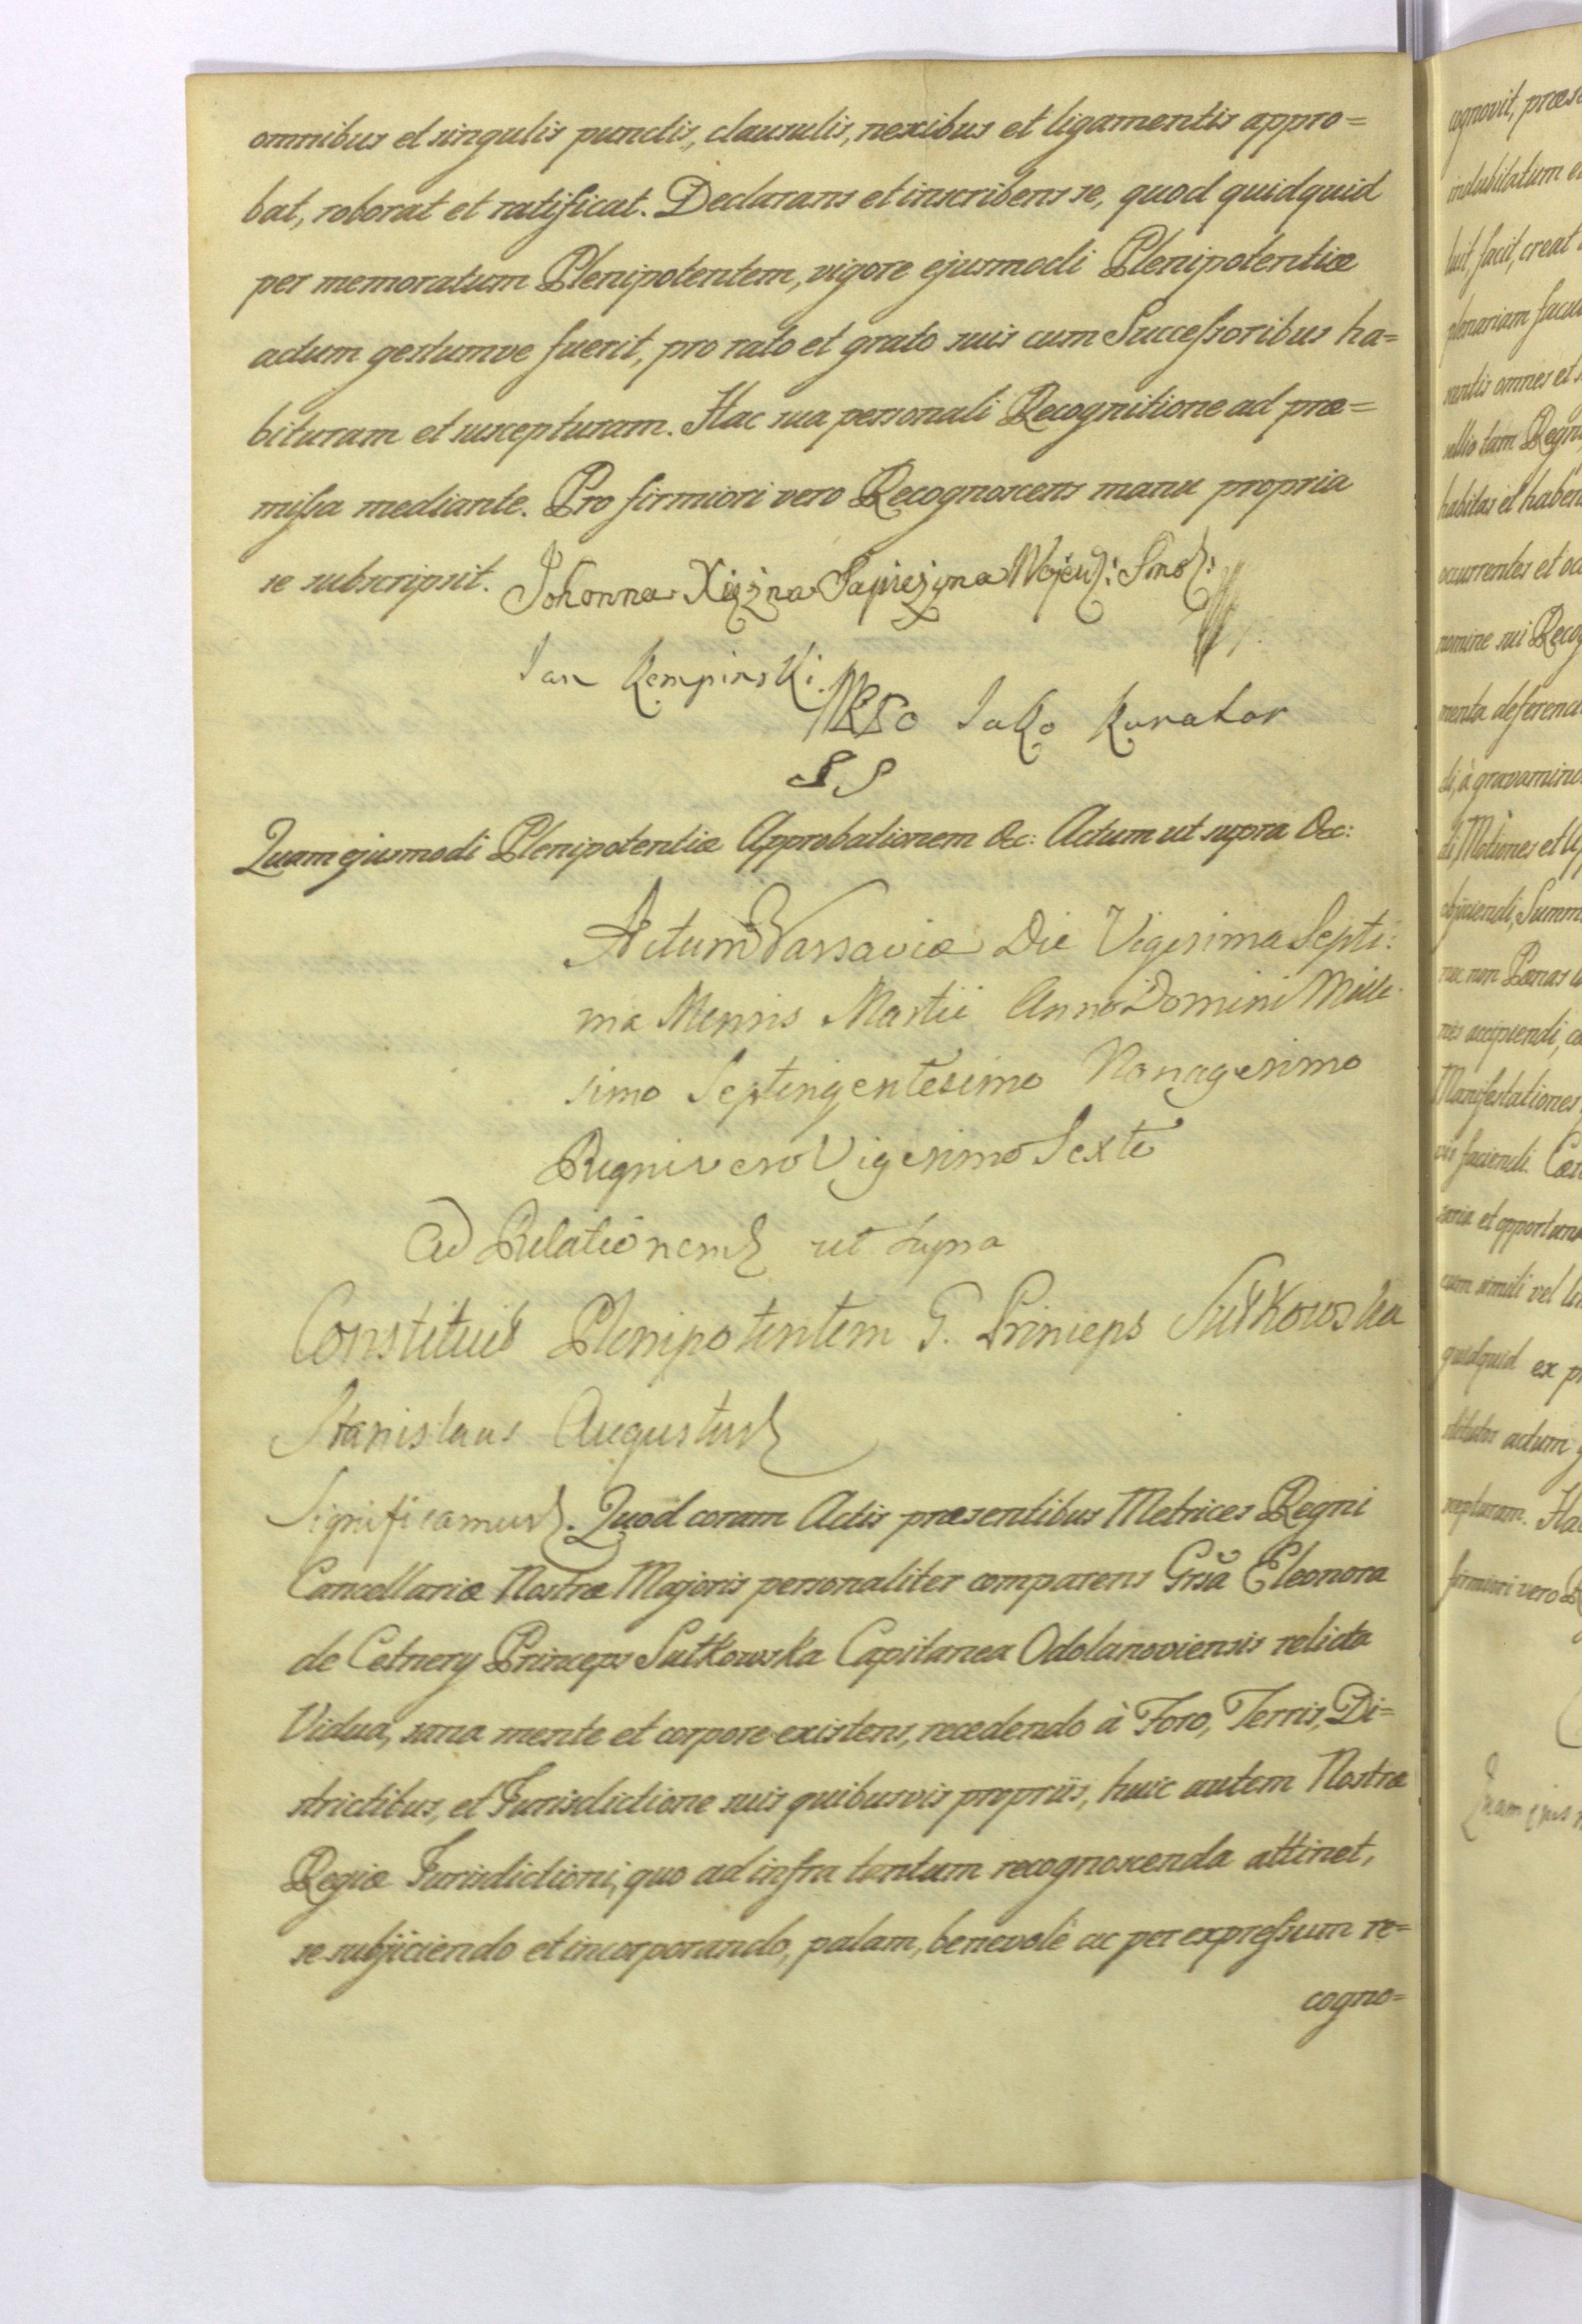 omnibus et singulis punctis, clausulis, nexibus et ligamentis appro=
bat, roborat et ratificat. Declarans et inscribens se, quod quidquid
per memoratum Plenipotentem, vigore ejusmodi Plenipotentiæ
actum gestumve fuerit, pro rato et grato suis cum Successoribus ha=
bituram et suscepturam. Hac sua personali Recognitione ad præ=
missa mediante. Pro firmiori vero Recognoscens manu propria
se subscripsit. Johonna Xiężna Sapieżyna Wojew: Smol:
Jan Kempinski Jako Kurator
Quam ejusmodi Plenipotentiæ Approbationem &c: Actum ut supra &c:
Actum Varsaviæ Die Vigesima Septi:
ma Mensis Martii Anno Domini Mille
simo Septingentesimo Nonagesimo
Regni vero Vigesimo Sexto
Ad Relationem ut supra
Constituit Plenipotentem G. Princeps Sułkowska
Stanislaus Augustus
Significamus. Quod coram Actis præsentibus Metrices Regni
Cancellariæ Nostræ Majoris personaliter comparens Grsã Eleonora
de Cetnery Princeps Sułkowska Capitanea Odolanoviensis relicta
Vidua, sana mente et corpore existens, recedendo à Foro, Terris, Di=
strictibus, et Jurisdictione suis quibusvis propriis, huic autem Nostræ
Regiæ Jurisdictioni, quo ad infra tantum recognoscenda attinet,
se subjiciendo et incorporando, palam, benevolè ac per expressum re=
cogno=
ognovit, præs
indubitatum e
luit, facit, creat
plenariam facul
ventis omnes et
habitas et haben
occurrentes et oc
nomine sui Recog
menta deferend
di, à gravamin
di Motiones et A
objiciendi, Summ
nec non Pœnas
nes accipiendi, c
Manifestationes
vis faciendi. Cæ
saria et opportuna
cum simili vel
quidquid ex p
stitutos actum g
scepturam. Ha
firmiori vero R
Quam ejus